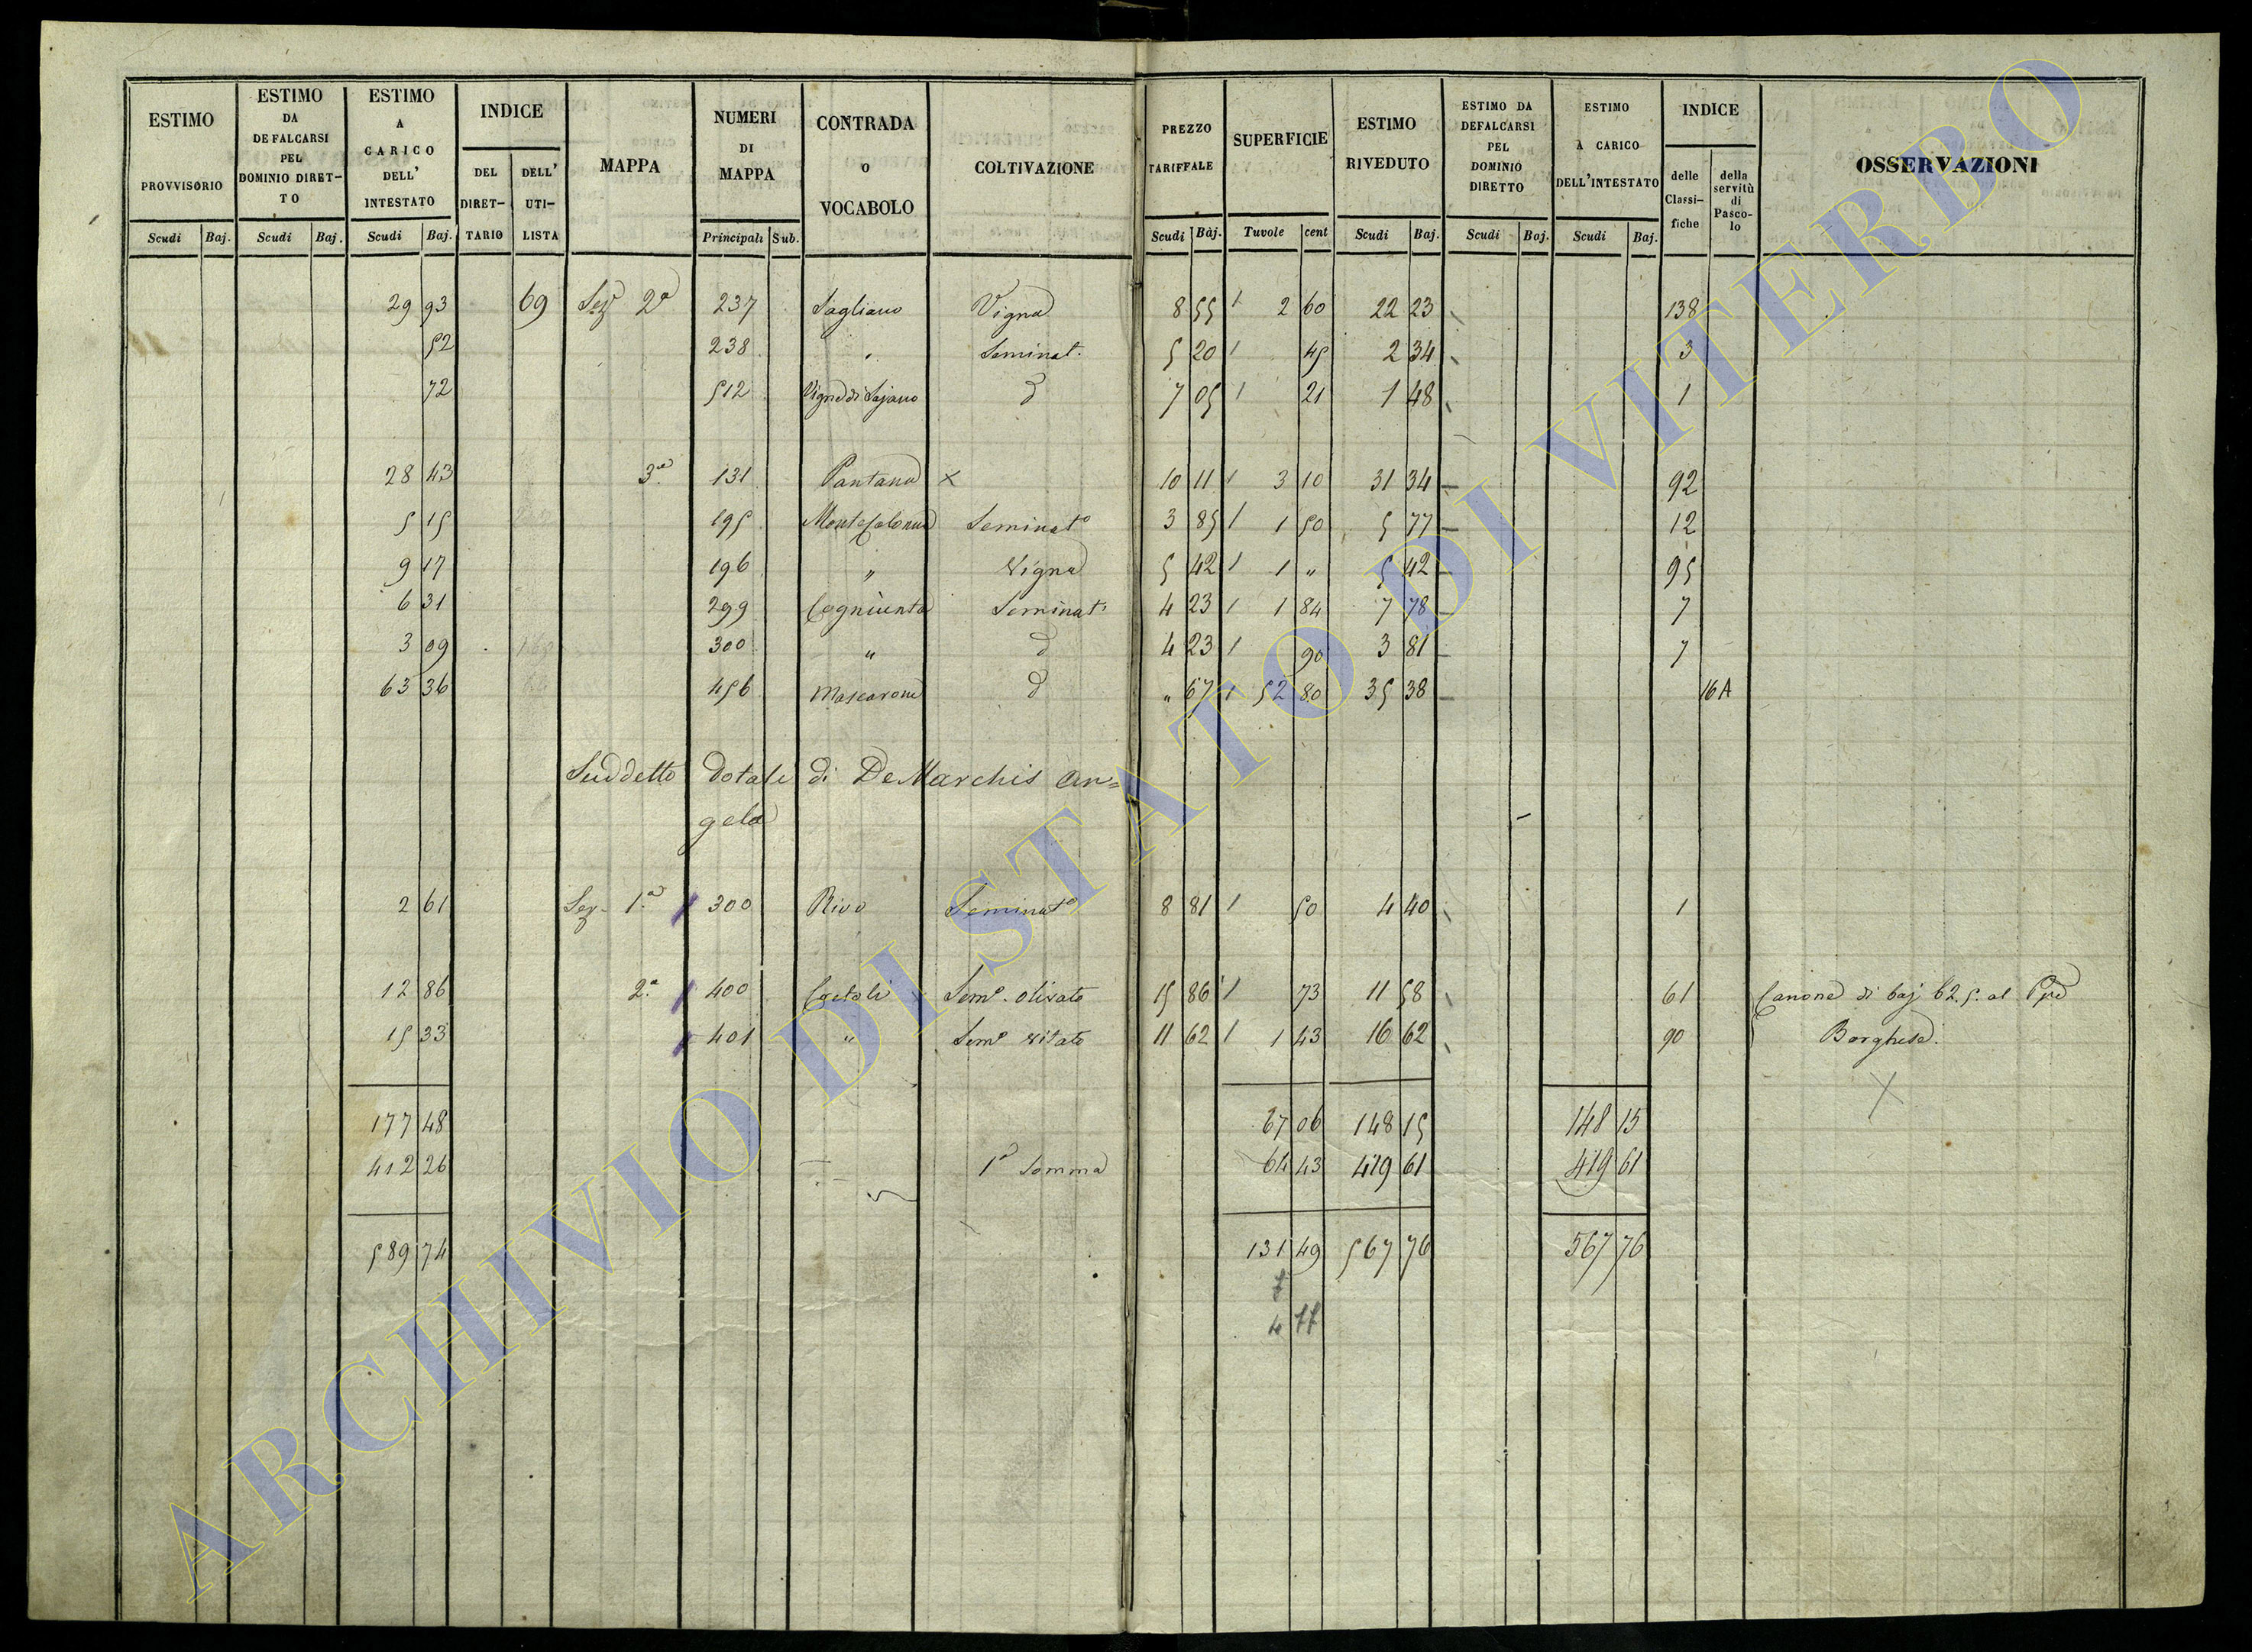 ESTIMO PROVVISORIO
ESTIMO DA DEFALCARSI PEL DOMINIO DIRET- TO
ESTIMO A CARICO DELL' INTESTATO
INDICE
DEL DIRET- TARIO
DELL' UTI- LISTA
MAPPA
NUMERI DI MAPPA
CONTRADA O VOCABOLO
COLTIVAZIONE
PREZZO TARIFFALE
SUPERFICIE
ESTIMO RIVEDUTO
ESTIMO DA DEFALCARSI PEL DOMINIO DIRETTO
ESTIMO A CARICO DELL'INTESTATO
INDICE
delle Classi- fiche
della servitù di Pasco- lo
OSSERVAZIONI
Scudi Baj. Scudi Baj. Scudi Baj. Principali Sub. Scudi Baj. Tavole cent Scudi Baj. Scudi Baj. Scudi Baj.
29 93 69 Sez 2a 237 Sagliano Vigna 8 55 2 60 22 23 138
52 238 " Seminat. 5 20 45 2 34 3
72 512 Vigne di Sajano d 7 05 21 1 48 1
28 43 3a 131 Pantana x 10 11 3 10 31 34 92
5 15 195 Seminato 3 85 1 50 5 77 12
9 17 196 " Vigna 5 42 1 " 5 42 95
6 31 299 Seminat. 4 23 1 84 7 78 7
3 09 300 " d 4 23 90 3 81 7
63 36 456 Mascarone d " 67 52 80 35 38 16 A
Suddetto dotale di De Marchis An=
gela
2 61 Sez. 1a 300 Rivo Seminato 8 81 50 4 40 1
12 86 2a 400 Semo. olivato 15 86 73 11 58 61 Canone di baj 62.5. al Ppe
15 33 401 " Semo vitato 11 62 1 43 16 62 90 Borghese.
177 48 67 06 148 15 148 15
412 26 1a Somma 64 43 419 61 419 61
589 74 131 49 567 76 567 76
4 77
ARCHIVIO DI STATO DI VITERBO